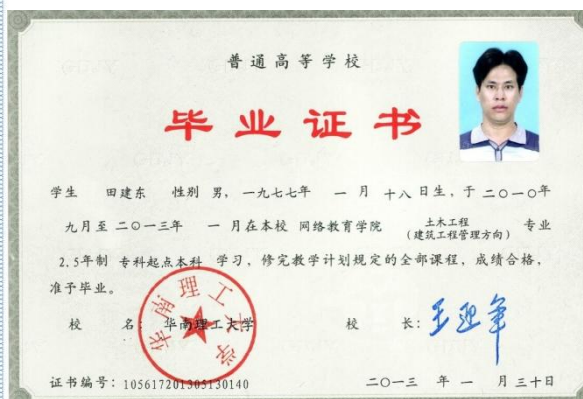 普通高等学校
毕业证书
学生 田建东 性别 男，一九七七年 一 月 十八 日生，于 二〇一〇年
九月至 二〇一三年 一 月在本校 网络教育学院 土木工程（建筑工程管理方向） 专业
2.5年制 专科起点本科 学习，修完教学计划规定的全部课程，成绩合格，
准予毕业。
校 名：华南理工大学 校 长：王迎军
华南理工大学
证书编号：105617201305130140 二〇一三 年 一 月三十日